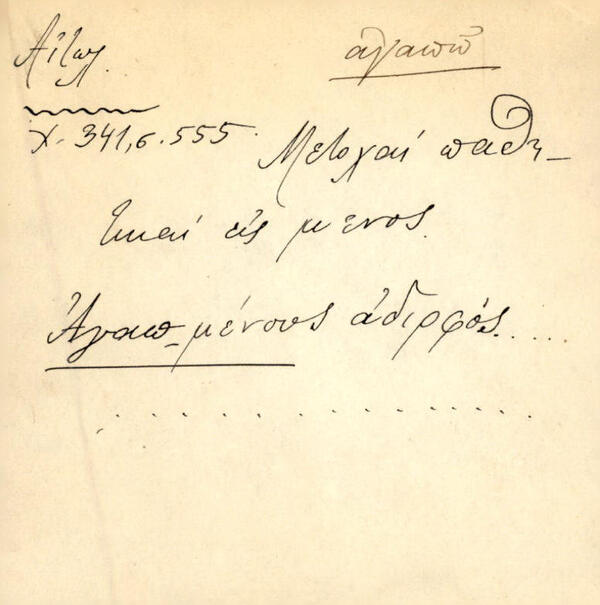 Αἰτωλ. ἀγαπῶ
χ. 341, σ. 555. Μετοχαὶ παθη-
τικαὶ εἰς μενος.
Ἀγαπ-μένους ἀδιρφός......
. . . . . . . . . . . . . . . .